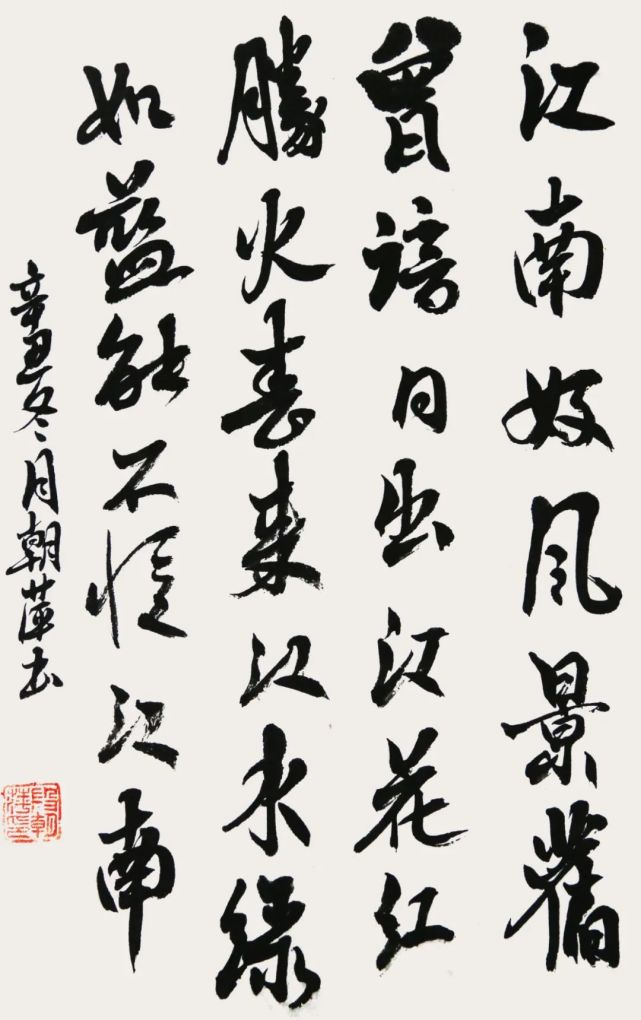 江南好风景舊
曾諳日出江花红
勝火春来江水绿
如藍能不憶江南
辛丑冬月朝萍书